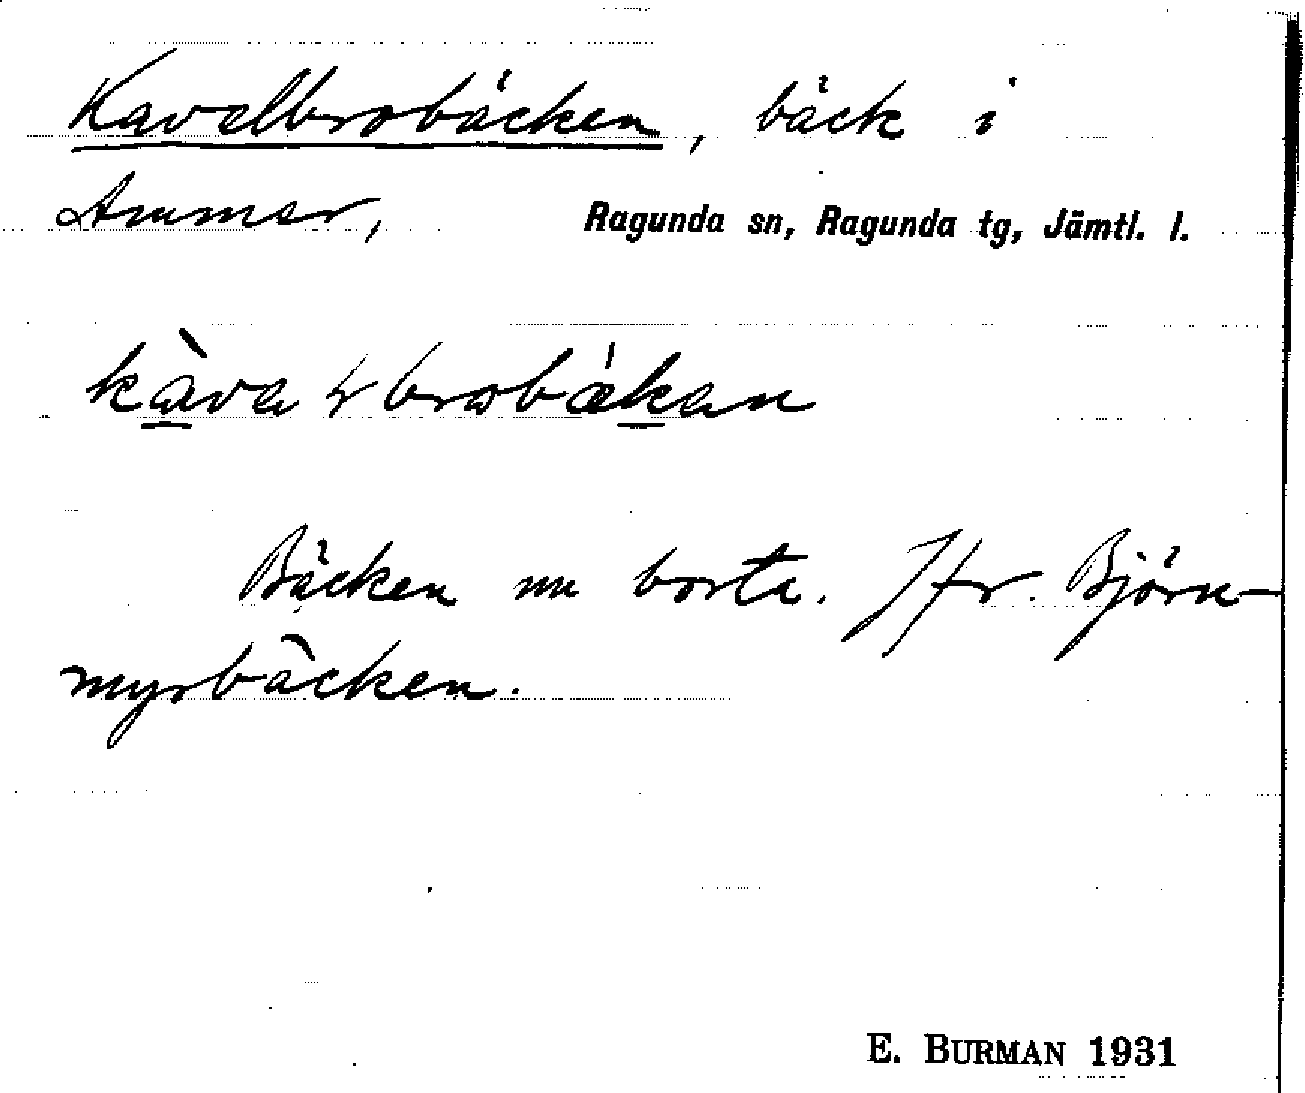 Kavelbrobäcken, bäck i
Ammer, Ragunda sn, Ragunda tg, Jämtl. l.
Bäcken nu borta. Jfr. Björn-
myrbäcken.
E. BURMAN 1931